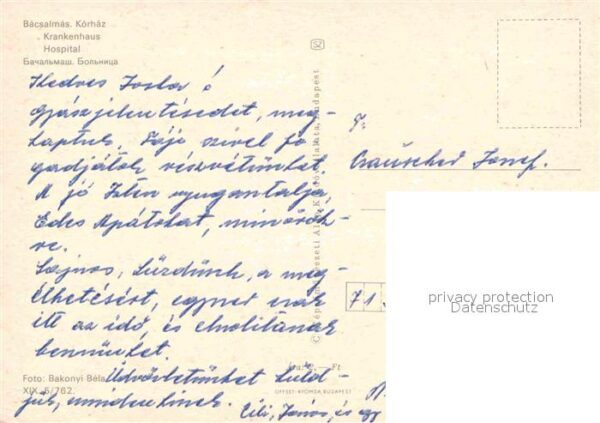 Bácsalmás. Kórház
Krankenhaus
Hospital
Бачальмаш. Больница
Kedves Joska !
gyászjelentésedet, meg-
kaptuk. Fájó szivel fo
gadjátok részvétünket.
A jó Isten nyugantalja,
Édes Apátokat, minörök-
re.
Sajnos, küzdünk, a meg-
élhetésért, egyner csak
itt az idő, és elszólítanak
bennünket.
Üdvözletünket küld-
jük, mindenkinek.
Cili, János, és
Foto: Bakonyi Béla
XIX. 5/762.
SZ
Budapest
Ára: Ft
OFFSET-NYOMDA, BUDAPEST
Josef.
71
privacy protection
Datenschutz